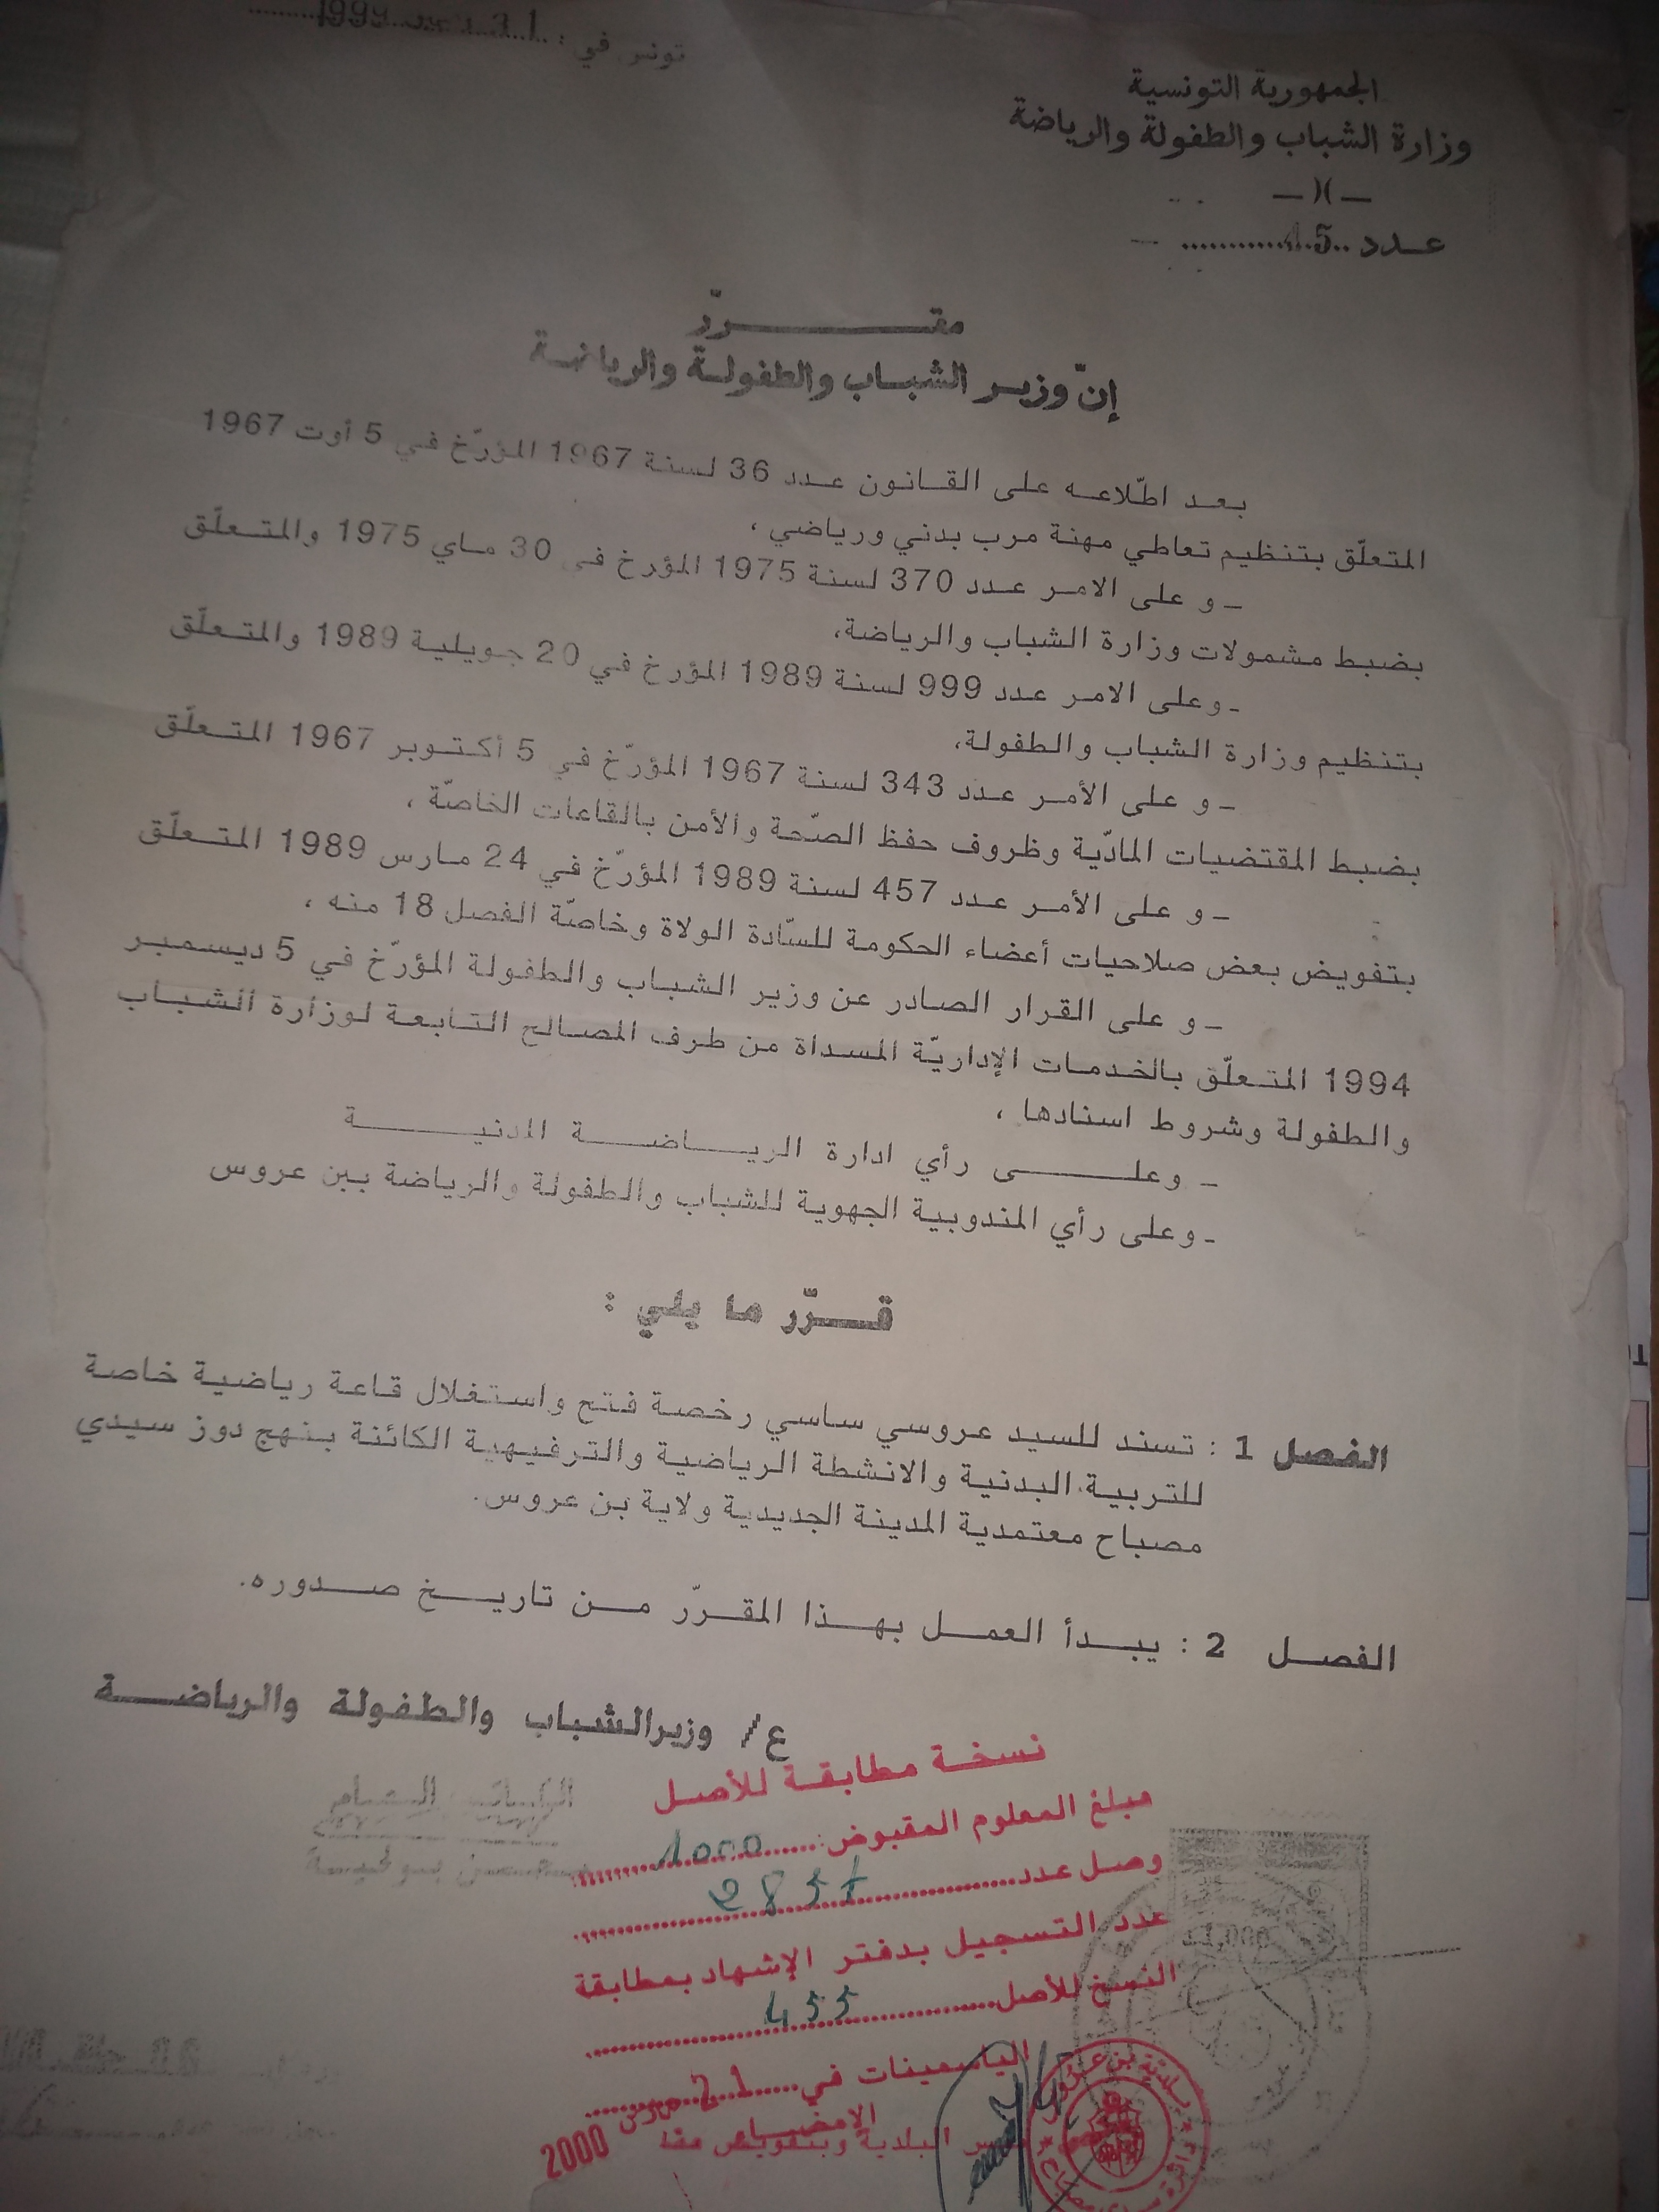 تونس في : 31 1999
الجمهورية التونسية
وزارة الشباب والطفولة والرياضة
عدد 15
مقرّر
إنّ وزير الشباب والطفولة والرياضة
بعد اطّلاعه على القانون عدد 36 لسنة 1967 المؤرّخ في 5 أوت 1967
المتعلّق بتنظيم تعاطي مهنة مرب بدني ورياضي ،
- و على الامر عدد 370 لسنة 1975 المؤرخ في 30 ماي 1975 والمتعلّق
بضبط مشمولات وزارة الشباب والرياضة،
- وعلى الامر عدد 999 لسنة 1989 المؤرخ في 20 جويلية 1989 والمتعلّق
بتنظيم وزارة الشباب والطفولة،
- و على الأمر عدد 343 لسنة 1967 المؤرّخ في 5 أكتوبر 1967 المتعلّق
بضبط المقتضيات المادّية وظروف حفظ الصّحة والأمن بالقاعات الخاصّة ،
- و على الأمر عدد 457 لسنة 1989 المؤرّخ في 24 مارس 1989 المتعلّق
بتفويض بعض صلاحيات أعضاء الحكومة للسّادة الولاة وخاصّة الفصل 18 منه ،
- و على القرار الصادر عن وزير الشباب والطفولة المؤرّخ في 5 ديسمبر
1994 المتعلّق بالخدمات الإداريّة المسداة من طرف المصالح التابعة لوزارة الشباب
والطفولة وشروط اسنادها ،
- وعلى رأي ادارة الرياضة المدنية
- وعلى رأي المندوبية الجهوية للشباب والطفولة والرياضة ببن عروس
قرّر ما يلي :
الفصل 1 : تسند للسيد عروسي ساسي رخصة فتح واستغلال قاعة رياضية خاصة
للتربية البدنية والانشطة الرياضية والترفيهية الكائنة بنهج دوز سيدي
مصباح معتمدية المدينة الجديدية ولاية بن عروس.
الفصل 2 : يبدأ العمل بهذا المقرّر من تاريخ صدوره.
ع/ وزير الشباب والطفولة والرياضة
نسخة مطابقة للأصل
مبلغ المعلوم المقبوض: 1000
وصل عدد 2857
عدد التسجيل بدفتر الإشهاد بمطابقة
النسخ للأصل 455
الياسمينات في 21 مارس 2000
الإمضاء
البلدية وبتفويض منه
بلدية بن عروس
دائرة سيدي مصباح
1,000